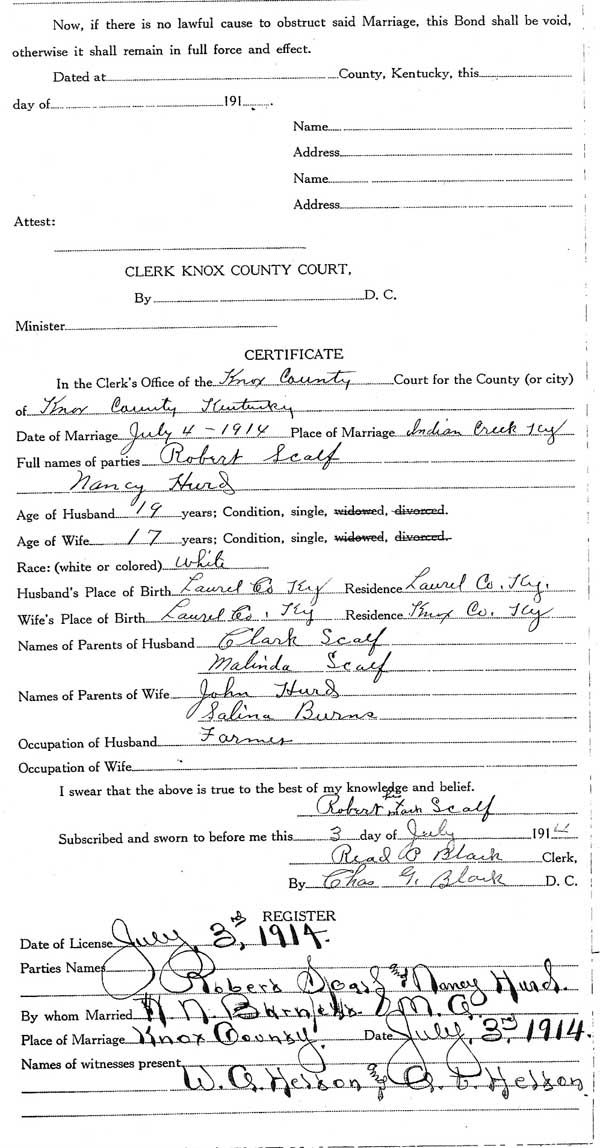 Now, if there is no lawful cause to obstruct said Marriage, this Bond shall be void,
otherwise it shall remain in full force and effect.
Dated at County, Kentucky, this
day of 191 .
Name
Address
Name
Address
Attest:
CLERK KNOX COUNTY COURT,
By D. C.
Minister
CERTIFICATE
In the Clerk's Office of the Knox County Court for the County (or city)
of Knox County Kentucky
Date of Marriage July 4 - 1914 Place of Marriage Indian Creek Ky
Full names of parties Robert Scalf
Nancy Hurd
Age of Husband 19 years; Condition, single, widowed, divorced.
Age of Wife 17 years; Condition, single, widowed, divorced.
Race: (white or colored) White
Husband's Place of Birth Laurel Co Ky Residence Laurel Co. Ky.
Wife's Place of Birth Laurel Co. Ky Residence Knox Co. Ky
Names of Parents of Husband Clark Scalf
Malinda Scalf
Names of Parents of Wife John Hurd
Salina Burns
Occupation of Husband Farmer
Occupation of Wife
I swear that the above is true to the best of my knowledge and belief.
Robert Scalf
Subscribed and sworn to before me this 3 day of July 1914
Read P Black Clerk,
By Chas G. Black D. C.
REGISTER
Date of License July 3rd, 1914.
Parties Names Robert Scalf and Nancy Hurd.
By whom Married H. N. M. G.
Place of Marriage Knox County, Date July, 3rd 1914.
Names of witnesses present
W. G. Helton and Helton